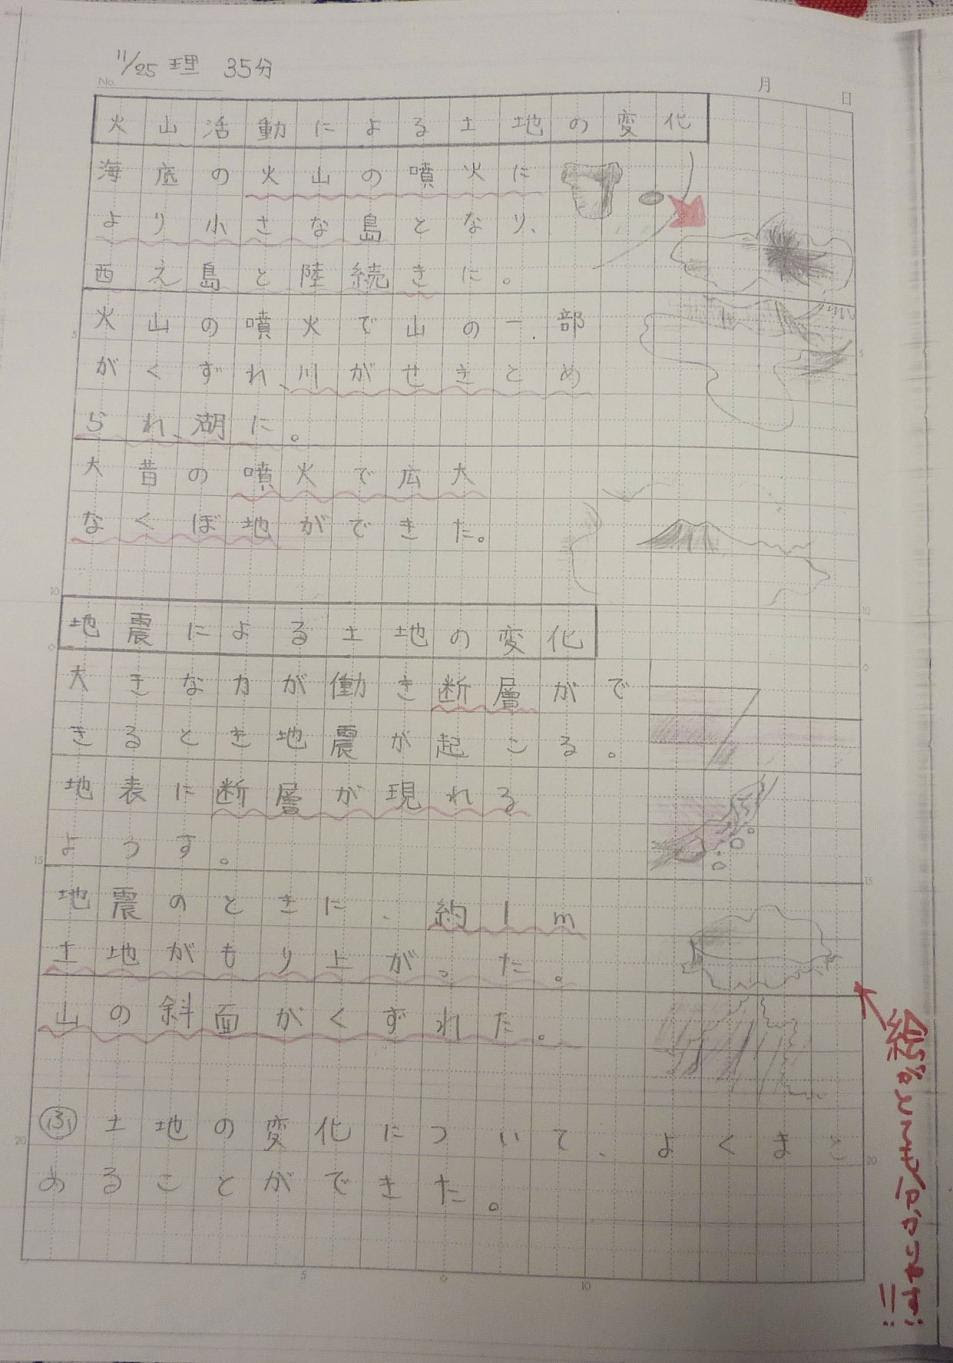 11/25 理 35分
No.
月 日
火山活動による土地の変化
海底の火山の噴火に
より小さな島となり、
西え島と陸続きに。
火山の噴火で山の一部
がくずれ、川がせきとめ
られ、湖に。
大昔の噴火で広大
なくぼ地ができた。
地震による土地の変化
大きな力が働き断層がで
きるとき地震が起こる。
地表に断層が現れる
ようす。
地震のときに、約1m
土地がもり上がった。
山の斜面がくずれた。
ふ 土地の変化について、よくまと
めることができた。
5
10
0
0
15
20
5
10
0
15
20
5
0
10
絵も